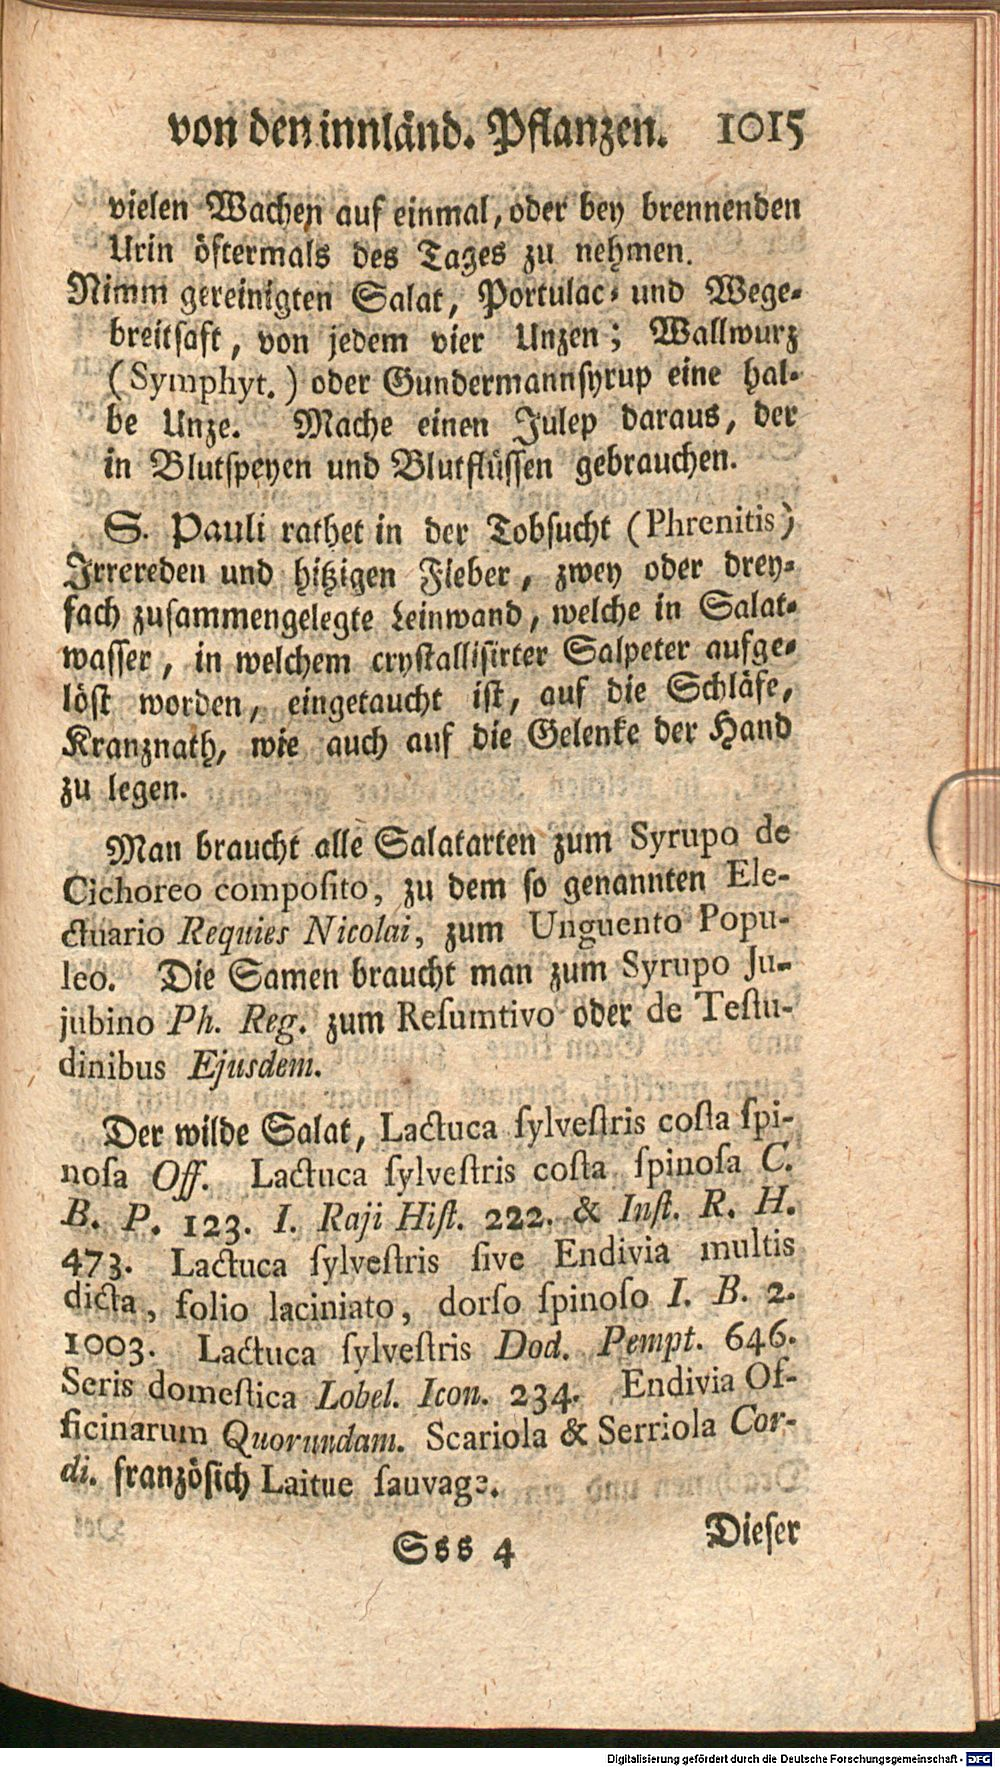 von den innländ. Pflanzen. 1015
vielen Wachen auf einmal, oder bey brennenden
Urin öftermals des Tages zu nehmen.
Nimm gereinigten Salat, Portulac- und Wege-
breitsaft, von jedem vier Unzen; Wallwurz
(Symphyt.) oder Gundermannsyrup eine hal-
be Unze. Mache einen Julep daraus, der
in Blutspeyen und Blutflüssen gebrauchen.
S. Pauli rathet in der Tobsucht (Phrenitis)
Irrereden und hitzigen Fieber, zwey oder drey-
fach zusammengelegte Leinwand, welche in Salat-
wasser, in welchem crystallisirter Salpeter aufge-
löst worden, eingetaucht ist, auf die Schläfe,
Kranznath, wie auch auf die Gelenke der Hand
zu legen.
Man braucht alle Salatarten zum Syrupo de
Cichoreo composito, zu dem so genannten Ele-
ctuario Requies Nicolai, zum Unguento Popu-
leo. Die Samen braucht man zum Syrupo Ju-
jubino Ph. Reg. zum Resumtivo oder de Testu-
dinibus Ejusdem.
Der wilde Salat, Lactuca sylvestris costa spi-
nosa Off. Lactuca sylvestris costa spinosa C.
B. P. 123. I. Raji Hist. 222. & Inst. R. H.
473. Lactuca sylvestris sive Endivia multis
dicta, folio laciniato, dorso spinoso I. B. 2.
1003. Lactuca sylvestris Dod. Pempt. 646.
Seris domestica Lobel. Icon. 234. Endivia Of-
ficinarum Quorundam. Scariola & Serriola Cor-
di. französich Laitue sauvage.
Sss 4 Dieser
Digitalisierung gefördert durch die Deutsche Forschungsgemeinschaft - DFG